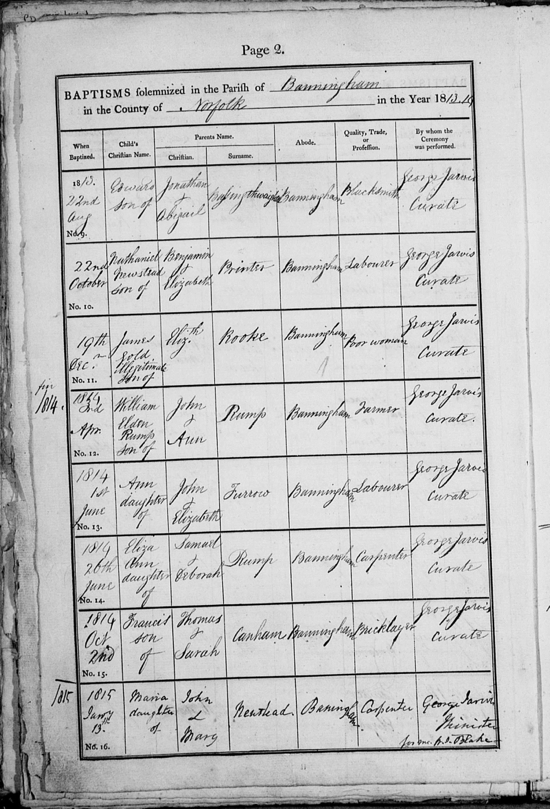 Page 2.
BAPTISMS solemnized in the Parish of Banningham
in the County of Norfolk in the Year 1813.14
When Baptized.
Child's Christian Name.
Parents Name.
Christian.
Surname.
Abode.
Quality, Trade, or Profession.
By whom the Ceremony was performed.
1813.
22nd
Aug
No. 9.
Edward
son of
Jonathan
&
Abigail
Banningham
Blacksmith
George Jarvis
Curate
22nd
October
No. 10.
Nathaniel
Newstead
son of
Benjamin
&
Elizabeth
Printer
Banningham
Labourer
George Jarvis
Curate
9th
Dec.r
No. 11.
James
Gold
Illegitimate
son of
Eliz.th
Rooke
Banningham
Poor woman
George Jarvis
Curate
1814.
1814
3rd
Apr.
No. 12.
William
Eldon
Rump
son of
John
&
Ann
Rump
Banningham
Farmer
George Jarvis
Curate.
1814
1st
June
No. 13.
Ann
daughter
of
John
&
Elizabeth
Furrow
Banningham
Labourer
George Jarvis
Curate
1814
26th
June
No. 14.
Eliza
Ann
daughter
of
Samuel
&
Deborah
Rump
Banningham
Carpenter
George Jarvis
Curate
1814
Oct
2nd
No. 15.
Francis
son
of
Thomas
&
Sarah
Canham
Banningham
Bricklayer
George Jarvis
Curate
1815
1815
Jany
13th
No. 16.
Maria
daughter
of
John
&
Mary
Newstead
Baningham
Carpenter
George Jarvis
Minister
for me.